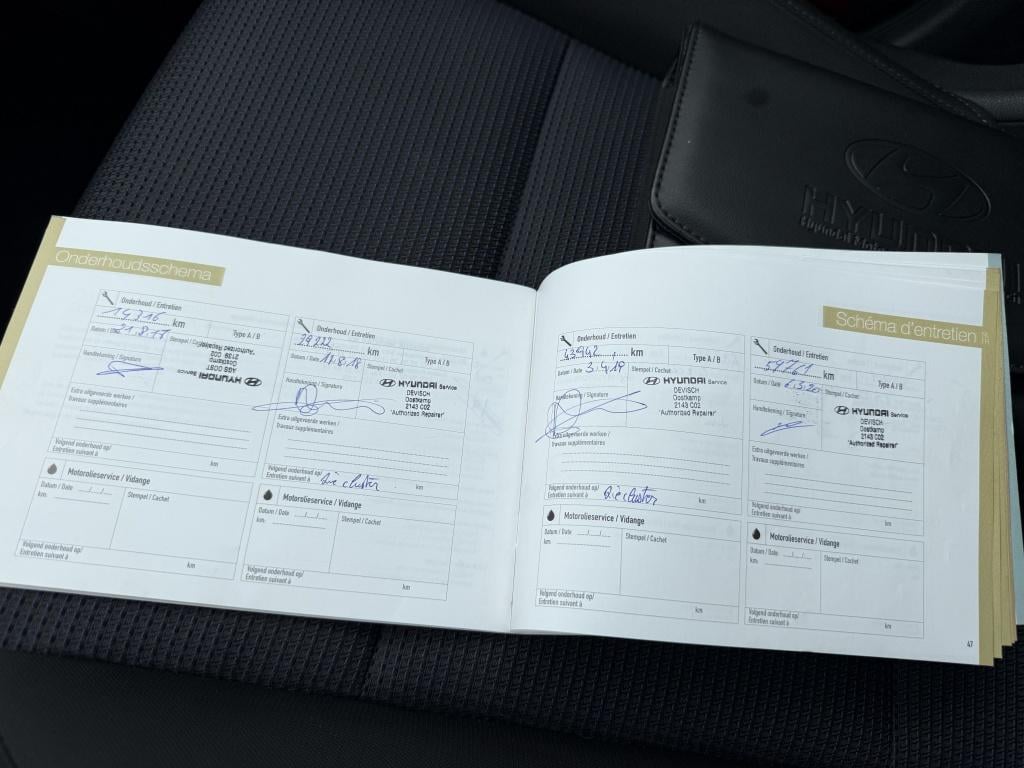 Onderhoudsschema
Onderhoud / Entretien
km
Datum / Date 21.8.17
Stempel / Cachet
Type A / B
Handtekening / Signature
HYUNDAI Service
ABS OOST
Oostkamp
2139 C02
"Authorized Repairer"
Extra uitgevoerde werken /
Travaux supplémentaires
Volgend onderhoud op/
Entretien suivant à km
Motorolieservice / Vidange
Datum / Date
Stempel / Cachet
km
Volgend onderhoud op/
Entretien suivant à km
Onderhoud / Entretien
km
Datum / Date 11.8.18
Stempel / Cachet
Type A / B
Handtekening / Signature
HYUNDAI Service
DEVISCH
Oostkamp
2143 C02
"Authorized Repairer"
Extra uitgevoerde werken /
Travaux supplémentaires
Volgend onderhoud op/
Entretien suivant à Zie cluster km
Motorolieservice / Vidange
Datum / Date
Stempel / Cachet
km
Volgend onderhoud op/
Entretien suivant à km
Schéma d'entretien
Onderhoud / Entretien
43942 km
Datum / Date 3.4.19
Stempel / Cachet
Type A / B
Handtekening / Signature
HYUNDAI Service
DEVISCH
Oostkamp
2143 C02
"Authorized Repairer"
Extra uitgevoerde werken /
Travaux supplémentaires
Volgend onderhoud op/
Entretien suivant à Zie cluster km
Motorolieservice / Vidange
Datum / Date
Stempel / Cachet
km
Volgend onderhoud op/
Entretien suivant à km
Onderhoud / Entretien
59761 km
Datum / Date 6.3.20
Stempel / Cachet
Type A / B
Handtekening / Signature
HYUNDAI Service
DEVISCH
Oostkamp
2143 C02
"Authorized Repairer"
Extra uitgevoerde werken /
Travaux supplémentaires
Volgend onderhoud op/
Entretien suivant à km
Motorolieservice / Vidange
Datum / Date
Stempel / Cachet
km
Volgend onderhoud op/
Entretien suivant à km
47
HYUNDAI